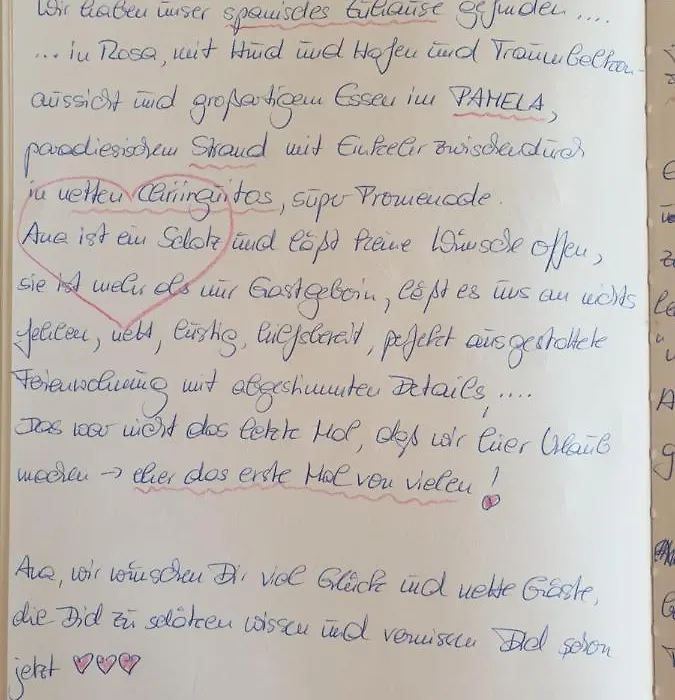 Wir haben unser spanisches Zuhause gefunden ....
... in Rosa, mit Hund und Hafen und Traumbelkon-
aussicht und großartigem Essen im PAMELA,
paradiesischem Strand mit Einkehr zwischendurch
in netten Chiringuitos, super Promenade.
Ana ist ein Schatz und läßt keine Wünsche offen,
sie ist mehr als nur Gastgeberin, läßt es uns an nichts
fehlen, nett, lustig, hilfsbereit, perfekt ausgestattete
Ferienwohnung mit abgestimmten Details, ....
Das war nicht das letzte Mal, daß wir hier Urlaub
machen → eher das erste Mal von vielen!
Ana, wir wünschen Dir viel Glück und nette Gäste,
die Dich zu schätzen wissen und vermissen Dich schon
jetzt ♡♡♡